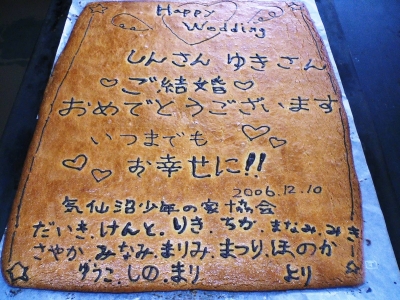 Happy
Wedding
しんさん ゆきさん
ご結婚
おめでとうございます
いつまでも
お幸せに!!
2006.12.10
気仙沼少年の家協会
だいき.けんと.りき.ちか.まなみ.みき
さやか.みなみ.まりみ.まつり.ほのか
ゆうこ.しの.まり より